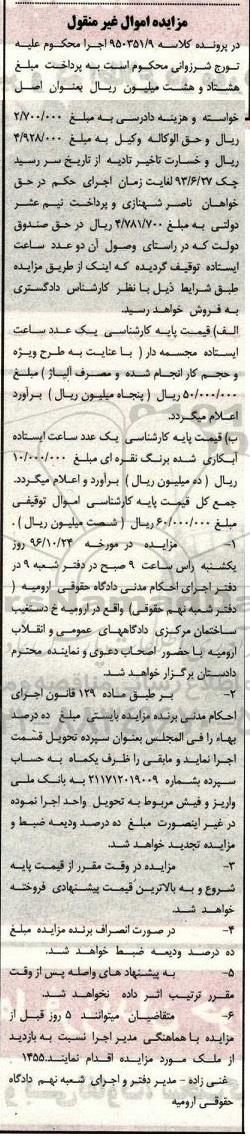 مزایده اموال غیر منقول
در پرونده کلاسه ۹۵۰۳۵۱/۹ اجرا محکوم علیه
تورج شرزوانی محکوم است به پرداخت مبلغ
هشتاد و هشت میلیون ریال بعنوان اصل
خواسته و هزینه دادرسی به مبلغ ۲/۷۰۰/۰۰۰
ریال و حق الوکاله وکیل به مبلغ ۴/۹۲۸/۰۰۰
ریال و خسارت تاخیر تادیه از تاریخ سر رسید
چک ۹۳/۶/۲۷ لغایت زمان اجرای حکم در حق
خواهان ناصر شهنازی و پرداخت نیم عشر
دولتی به مبلغ ۴/۷۸۱/۷۰۰ ریال در حق صندوق
دولت که در راستای وصول آن دو عدد ساعت
ایستاده توقیف گردیده که اینک از طریق مزایده
طبق شرایط ذیل با نظر کارشناس دادگستری
به فروش خواهد رسید.
الف) قیمت پایه کارشناسی یک عدد ساعت
ایستاده مجسمه دار ( با عنایت به طرح ویژه
و حجم کار انجام شده و مصرف آلیاژ ) مبلغ
۵۰/۰۰۰/۰۰۰ ریال ( پنجاه میلیون ریال ) برآورد
اعلام میگردد.
ب) قیمت پایه کارشناسی یک عدد ساعت ایستاده
آبکاری شده برنگ نقره ای مبلغ ۱۰/۰۰۰/۰۰۰
ریال ( ده میلیون ریال ) برآورد و اعلام میگردد.
جمع کل قیمت پایه کارشناسی اموال توقیفی
مبلغ ۶۰/۰۰۰/۰۰۰ ریال ( شصت میلیون ریال ) .
۱- مزایده در مورخه ۹۶/۱۰/۲۴ روز
یکشنبه راس ساعت ۹ صبح در دفتر شعبه ۹ در
دفتر اجرای احکام مدنی دادگاه حقوقی ارومیه (
دفتر شعبه نهم حقوقی) واقع در ارومیه خ دستغیب
ساختمان مرکزی دادگاههای عمومی و انقلاب
ارومیه با حضور اصحاب دعوی و نماینده محترم
دادستان برگزار خواهد شد.
۲- بر طبق ماده ۱۲۹ قانون اجرای
احکام مدنی برنده مزایده بایستی مبلغ ده درصد
بهاء را فی المجلس بعنوان سپرده تحویل قسمت
اجرا نماید و مابقی را ظرف یکماه به حساب
سپرده بشماره ۲۱۱۷۱۲۰۱۹۰۰۹ به بانک ملی
واریز و فیش مربوط به تحویل واحد اجرا نموده
در غیر اینصورت مبلغ ده درصد ودیعه ضبط و
مزایده تجدید خواهد شد.
۳- مزایده در وقت مقرر از قیمت پایه
شروع و به بالاترین قیمت پیشنهادی فروخته
خواهد شد.
۴- در صورت انصراف برنده مزایده مبلغ
ده درصد ودیعه ضبط خواهد شد.
۵- به پیشنهاد های واصله پس از وقت
مقرر ترتیب اثر داده نخواهد شد.
۶- متقاضیان میتوانند ۵ روز قبل از
مزایده با هماهنگی مدیر اجرا نسبت به بازدید
از ملک مورد مزایده اقدام نمایند.۱۴۵۵
غنی زاده - مدیر دفتر و اجرای شعبه نهم دادگاه
حقوقی ارومیه